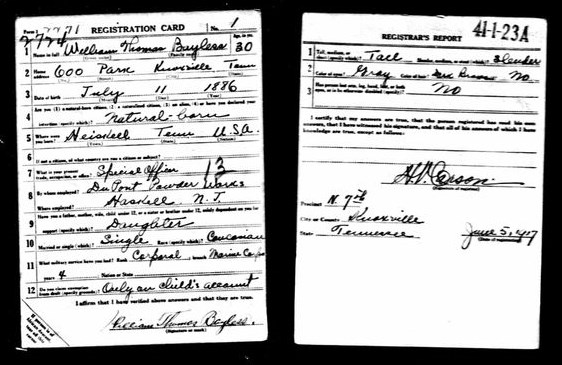 Form 1
REGISTRATION CARD
No. 1
1 Name in full William Thomas Bayless Age, in yrs. 30
2 Home address 600 Park Knoxville Tenn
3 Date of birth July 11 1886
4 Are you (1) a natural-born citizen, (2) a naturalized citizen, (3) an alien, (4) or have you declared your intention (specify which)? Natural-born
5 Where were you born? Heiskell Tenn U.S.A.
6 If not a citizen, of what country are you a citizen or subject?
7 What is your present trade, occupation, or office? Special Officer 13
8 By whom employed? DuPont Powder Works
Where employed? Haskell N. J.
9 Have you a father, mother, wife, child under 12, or a sister or brother under 12, solely dependent on you for support (specify which)? Daughter
10 Married or single (which)? Single Race (specify which)? Caucasian
11 What military service have you had? Rank Corporal branch Marine Corps
years 4 Nation or State
12 Do you claim exemption from draft (specify grounds)? Only on child's account
I affirm that I have verified above answers and that they are true.
William Thomas Bayless.
(Signature or mark)
REGISTRAR'S REPORT
41-1-23A
1 Tall, medium, or short (specify which)? Tall Slender, medium, or stout (which)? Slender
2 Color of eyes? Gray Color of hair? Brown No
3 Has person lost arm, leg, hand, foot, or both eyes, or is he otherwise disabled (specify)? No
I certify that my answers are true, that the person registered has read his own answers, that I have witnessed his signature, and that all of his answers of which I have knowledge are true, except as follows:
Carson
(Signature of registrar)
Precinct N. 7th
City or County Knoxville
State Tennessee
June 5, 1917
(Date of registration)